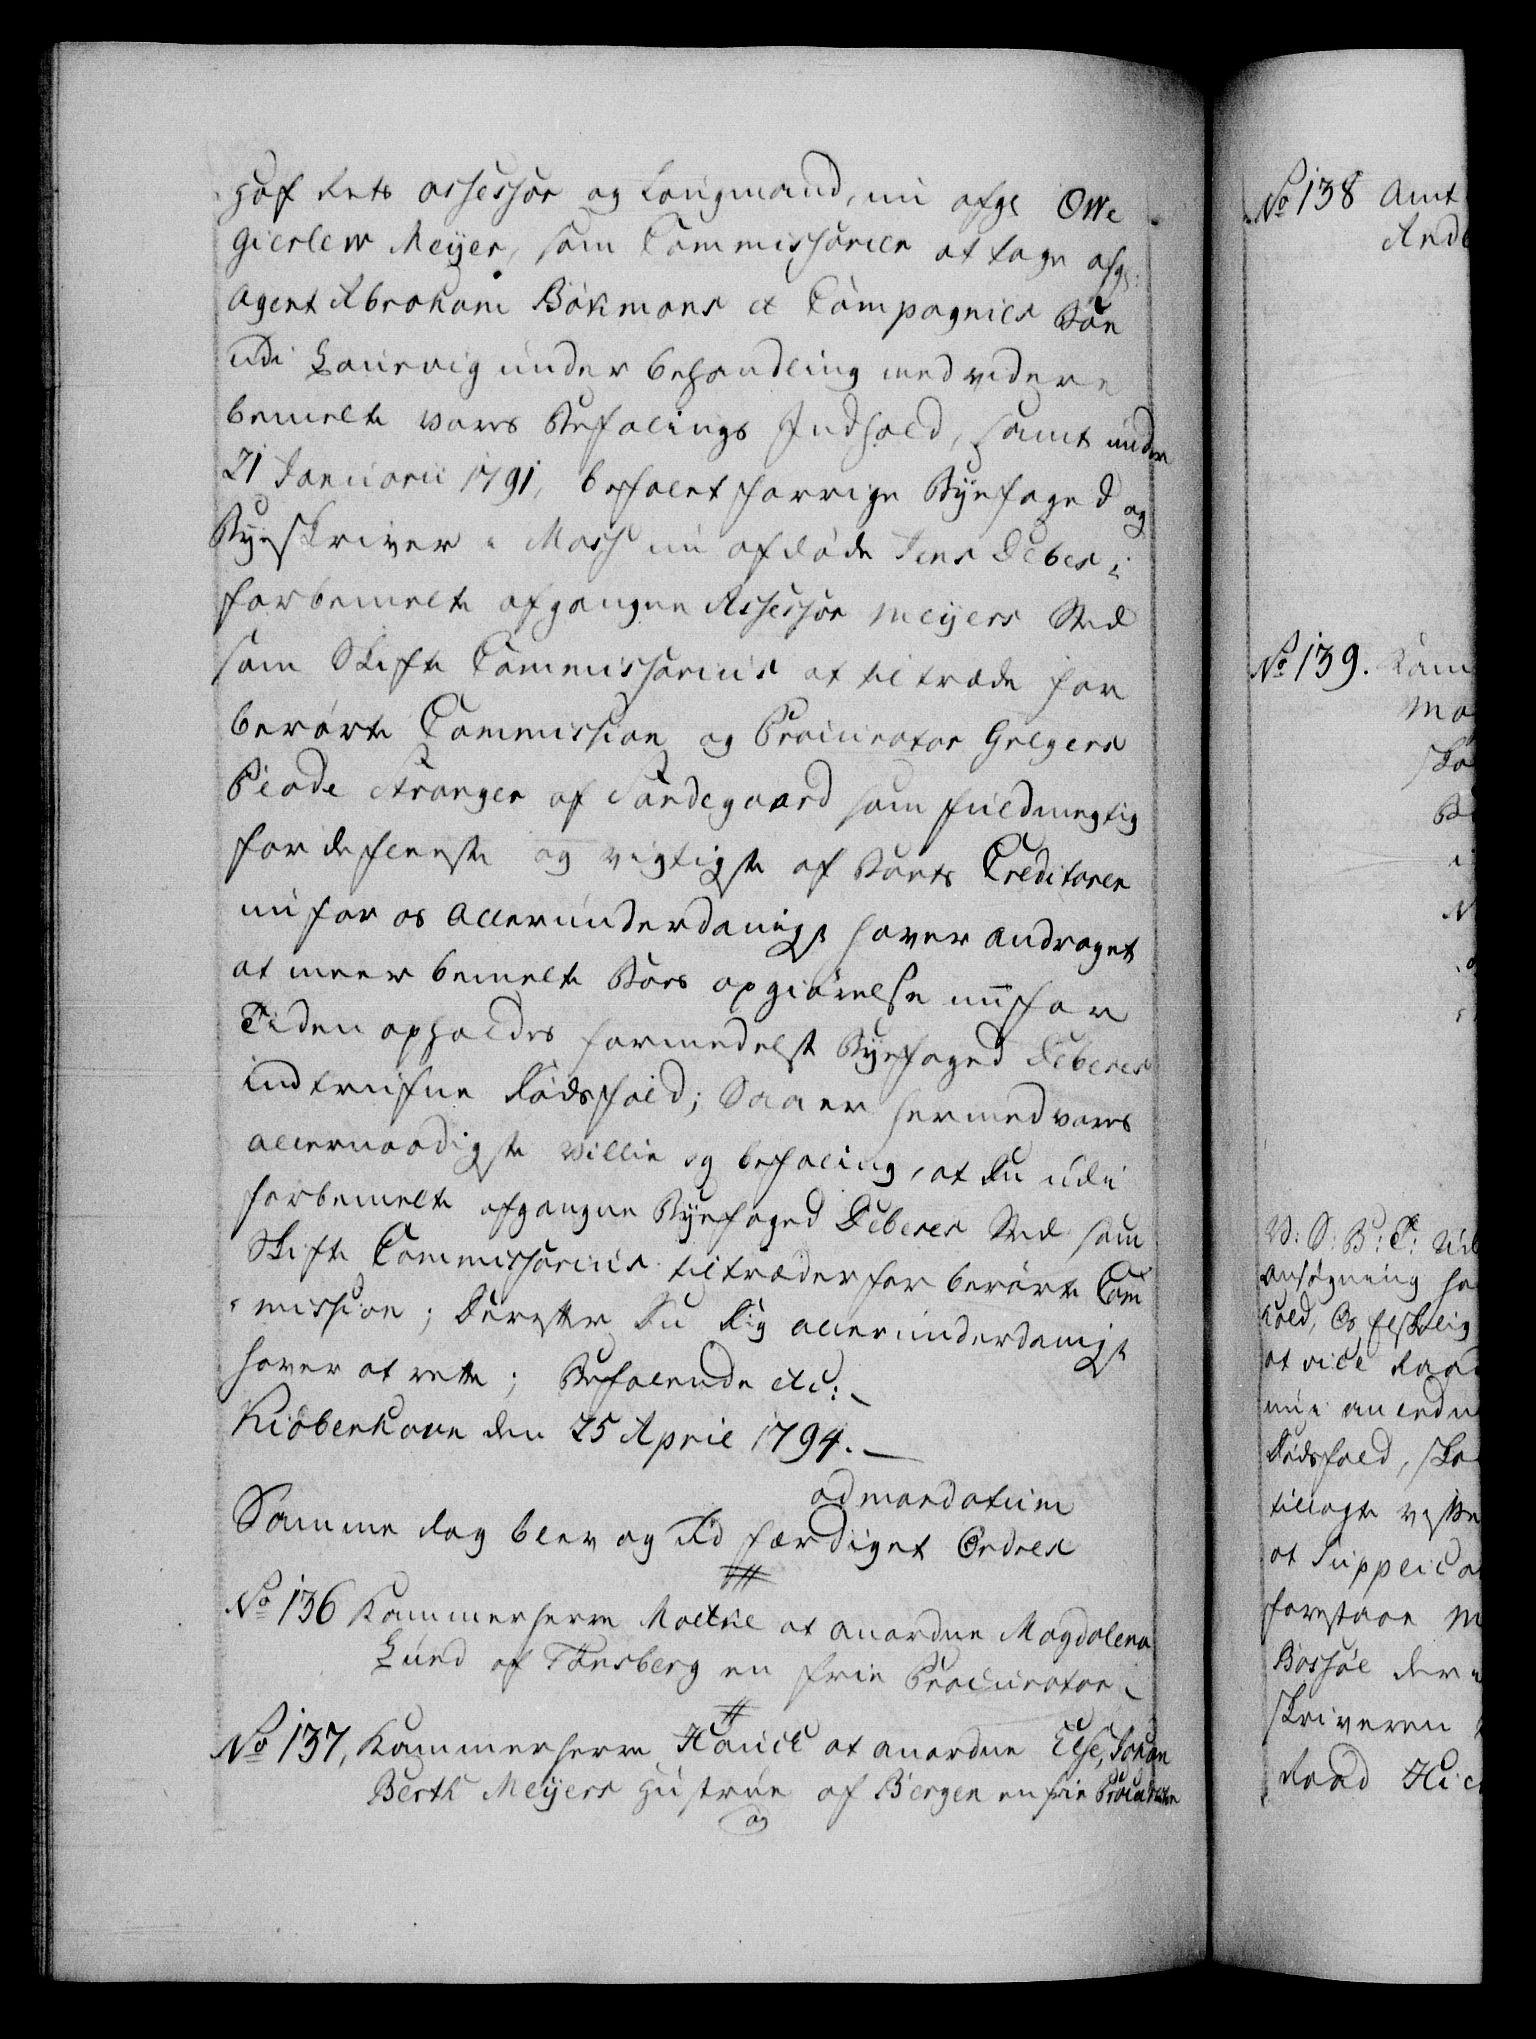 Hof Rets Assessor og Laugmand, nu afg: Owe
Gierlew Meyer, som Commissarier at tage afg:
Agent Abraham Bökmans et Compagnies Boe
udi Laurvig under behandling med videre
bemelte vores Befalings Indhold, samt under
21 Januarii 1791, befalet forrige Byefoged og
Byeskriver i Moss nu afdöde Jens Debes i
forbemelte afgangne Assessor Meyers Sted
som Skifte Commissarius at tiltræde for
berörte Commission og Procurator Gregers
Stranger af Sandegaard som fuldmegtig
for de fleeste og vigtigste af Boets Creditorer
nu for os allerunderdanigst haver andraget
at meerbemelte Boes opgiörelse nu for
Tiden opholdes formedelst Byefoged Debeses
indtrufne Dödsfald; Saa er hermed vores
allernaadigste Villie og befaling, at du udi
forbemelte afgangne Byefoged Debeses Sted som
Skifte Commissarius tiltræder forberörte Com
-mission; Derefter Du Dig allerunderdanigst
haver at rette; Befalende etc:
Kiöbenhavn den 25 April 1794.
ad mandatum
Samme dag blev og Ud færdiget Ordres
No 136 Kammerherre Moltke at anordne Magdalena
Lund af Tönsberg en frie Procurator
No 137, Kammerherre Hauch at anordne Else, Johan
Berth Meyers Hustrue af Bergen en frie Procurator
og
No 138 Amt
No 139. Kam
Ma
V: S: B: T:
ansögning
at vice Raad
Dödsfald,
tillagte
at Supplica
forestaae
Bossöe der
skriveren
Raad